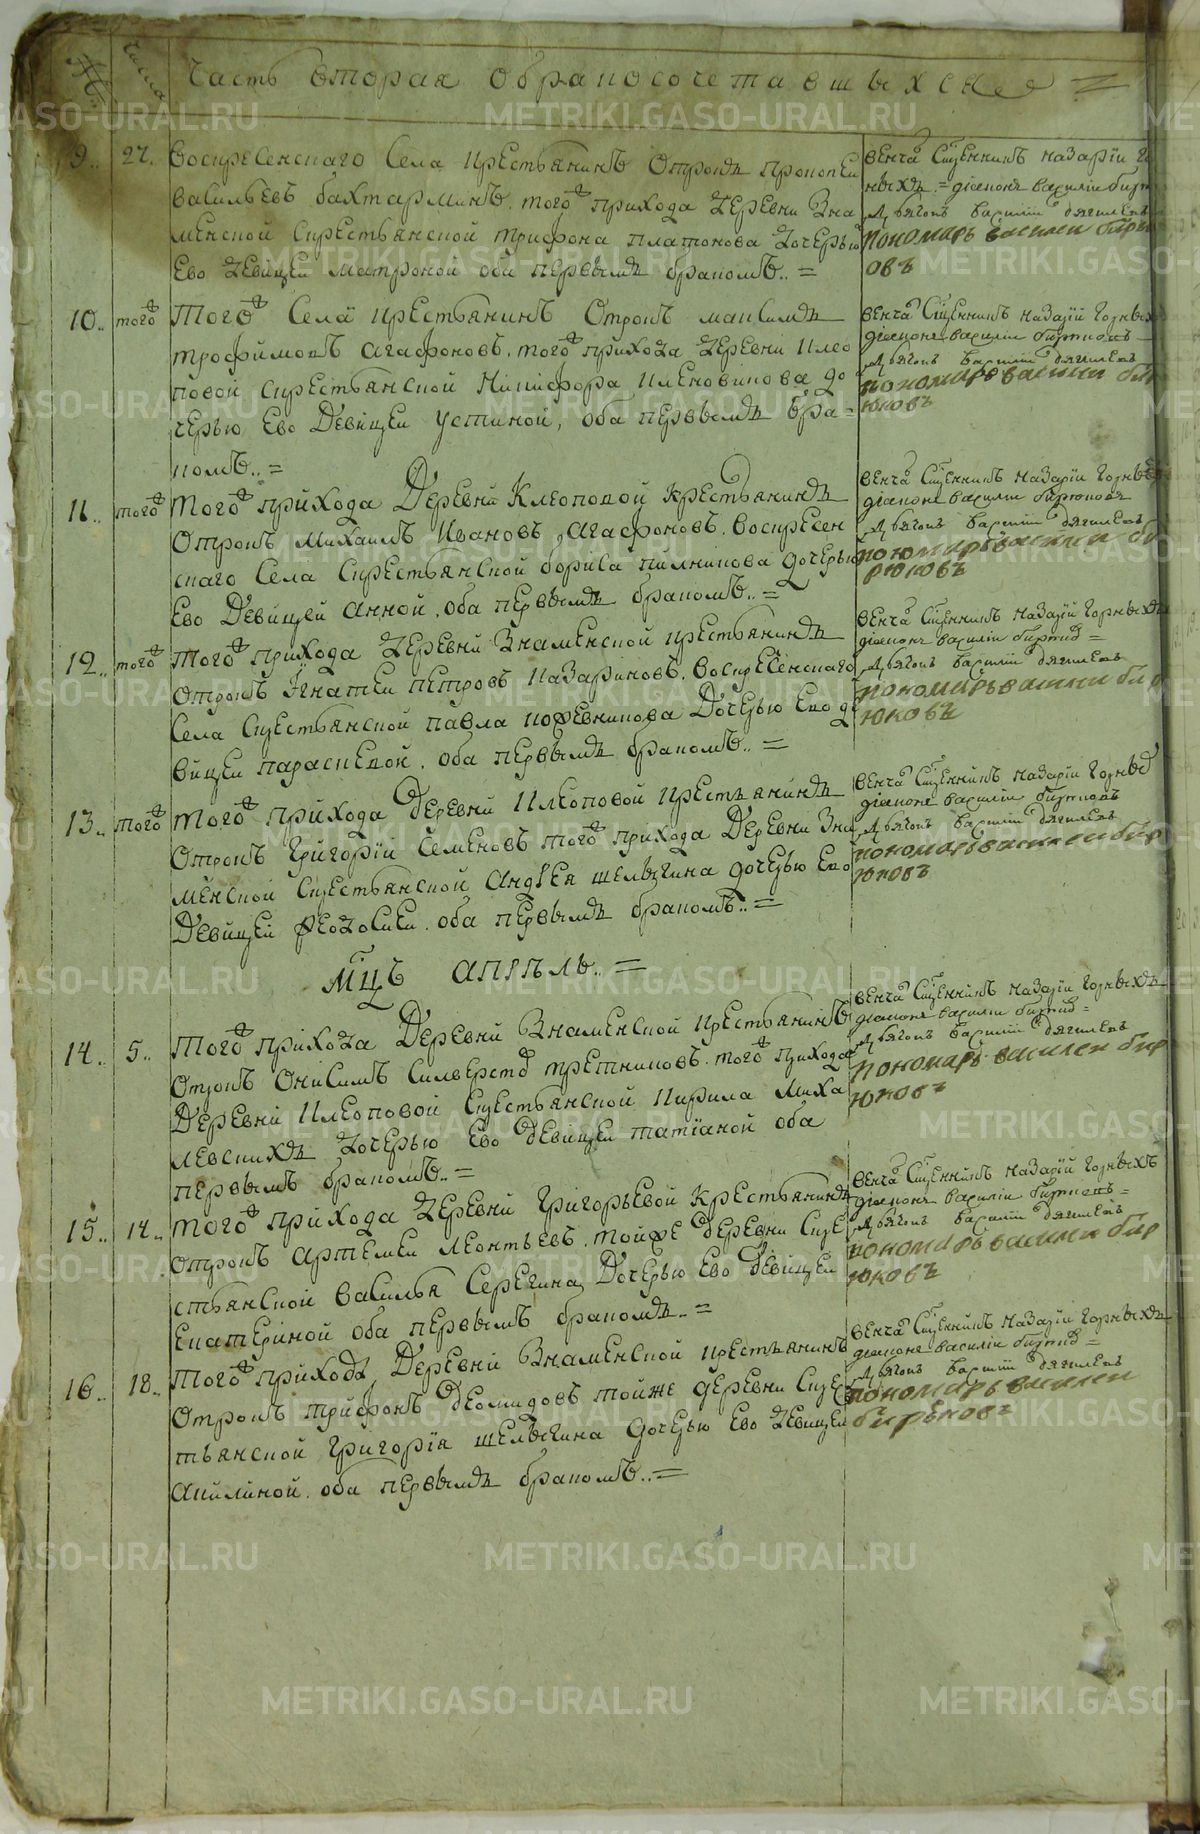 № числа Часть вторая обракосочетавшыхся
9.. 27. Воскресенскаго Села крестьянинъ Отрокъ Прокопеи
васильевъ бахтарминъ. того прихода деревни Зна
менской Скрестьянской трифона платонова дочерью
Ево девицеи матроной оба первымъ бракомъ.. =
венча Сщенникъ назарiи
ныхъ = дiаконъ василiи
Дьячокъ василiи дягилевъ
пономарь василеи бирю
овъ
10.. того Того Села крестьянинъ Отрокъ максимъ
трофимовъ агафоновъ. того прихода деревни клео
повой скрестьянской Никифора до
черью Ево девицеи устиной, оба первымъ бра=
комъ.. =
венча Сщенникъ назарiй горныхъ
дiаконъ василiи бирюковъ
Дьячокъ василiи дягилевъ
пономарь василеи бир
юковъ
11.. того Того прихода Деревни Клеоповой крестьянинъ
Отрокъ михаилъ Ивановъ Агафоновъ. воскресен
скаго Села Скрестьянской бориса пилникова дочерью
Ево Девицей анной. оба первымъ бракомъ.. =
венча Сщенникъ назарiи горныхъ
дiаконъ василiи бирюковъ
Дьячокъ василiи дягилевъ
пономарь василеи би
рюковъ
12.. того Того прихода деревни Знаменской крестьянинъ
Отрокъ Игнатеи петровъ назариновъ. воскресенскаго
Села Скрестьянской павла кожевникова Дочерью Ево де
вицеи параскевой. оба первымъ бракомъ.. =
венча Сщенникъ назарiй горныхъ
дiаконъ василiи =
Дьячокъ василiи дягилевъ
пономарь василеи бир
юковъ
13.. того того прихода Деревни Клеоповой крестьянинъ
Отрокъ григорiй Семеновъ того прихода Деревни Зна
менской Скрестьянской Андрея шелыгина дочерью Ево
Девицей феодосиеи. оба первымъ бракомъ.. =
венча Сщенникъ назарiи
дiаконъ василiи бирюковъ
Дьячокъ василiи дягилевъ
пономарь василеи бир
юковъ
мцъ апрѣль.. =
14.. 5.. Того прихода Деревни Знаменской крестьянинъ
Отрокъ Онисимъ третниковъ. того прихода
Деревни Клеоповой Скрестьянской Кирила миха
левскихъ дочерью Ево девицеи татiаной оба
первымъ бракомъ.. =
венча Сщенникъ назарiи горныхъ
дiаконъ василiи =
Дьячокъ василiи дягилевъ
пономарь василеи бир
юковъ
15.. 14.. Того прихода деревни григорьевой крестьянинъ
отрокъ артемеи леонтьевъ. тойже деревни Скре
стьянской василья Серегина Дочерью Ево девицеи
Екатериной оба первымъ бракомъ.. =
венча Сщенникъ назарiй горныхъ
дiаконъ василiи бирюковъ =
Дьячокъ василiи дягилевъ
пономарь василеи бир
юковъ
16.. 18.. Того прихода, Деревни Знаменской крестьянинъ
Отрокъ трифонъ деомидовъ тойже деревни Скрес
тьянской григорiя шелыгина дочерью Ево девицеи
акилиной. оба первымъ бракомъ.. =
венча Сщенникъ назарiй горныхъ
дiаконъ василiи =
Дьячокъ василiи дягилевъ
пономарь василеи
бирюковъ
METRIKI.GASO-URAL.RU